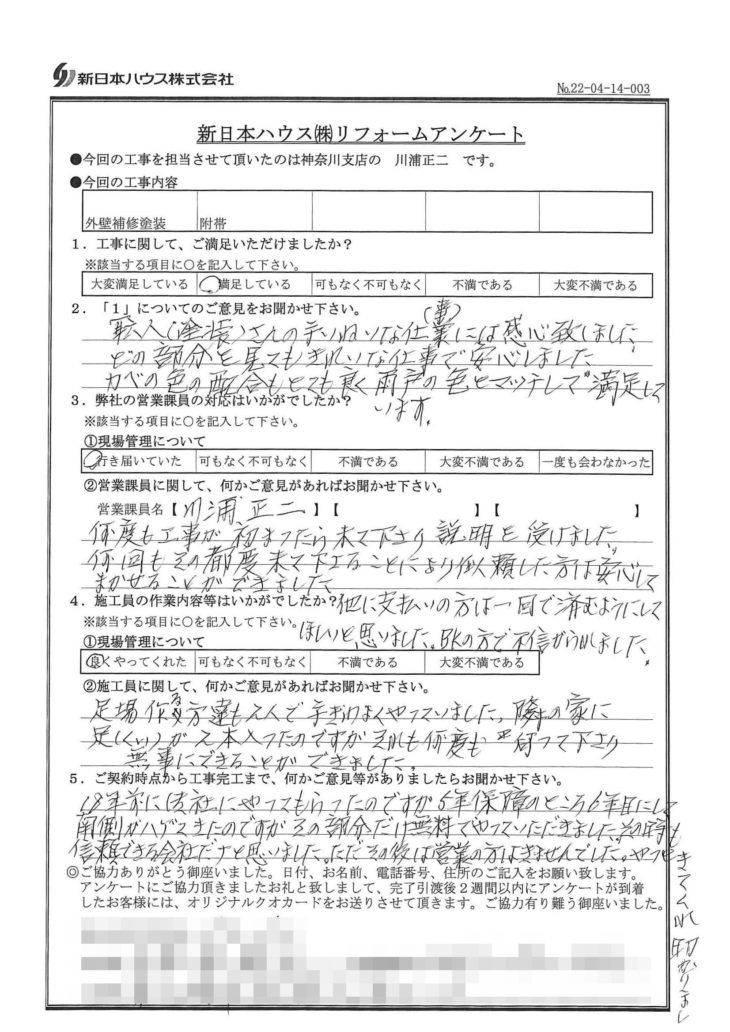 新日本ハウス株式会社
№22-04-14-003
新日本ハウス㈱リフォームアンケート
●今回の工事を担当させて頂いたのは神奈川支店の 川浦正二 です。
●今回の工事内容
外壁補修塗装 附帯
1．工事に関して、ご満足いただけましたか？
※該当する項目に○を記入して下さい。
大変満足している 満足している 可もなく不可もなく 不満である 大変不満である
2．「1」についてのご意見をお聞かせ下さい。
(塗装)さんの手いねいな仕業(事)には感心致しました
どの部分を見てもきれいな仕事で安心しました
カベの色の配合もとても良く雨戸の色とマッチして満足して
います。
3．弊社の営業課員の対応はいかがでしたか？
※該当する項目に○を記入して下さい。
①現場管理について
行き届いていた 可もなく不可もなく 不満である 大変不満である 一度も会わなかった
②営業課員に関して、何かご意見があればお聞かせ下さい。
営業課員名【川浦正二 】【 】【 】
何度も工事が初まったら来て下さり説明を受けました。
何回もその都度来て下さることにより依頼した方は安心して
まかせることができました
4．施工員の作業内容等はいかがでしたか？
他に支払いの方は一回で済むようにして
※該当する項目に○を記入して下さい。
ほしいと思いました。BKの方で不信がられました。
①現場管理について
良くやってくれた 可もなく不可もなく 不満である 大変不満である
②施工員に関して、何かご意見があればお聞かせ下さい。
足場作る方達も2人で手ぎわよくやっていました。隣の家に
足(くい)が2本入ったのですがそれも何度も行って下さり
無事にできることができました。
5．ご契約時点から工事完工まで、何かご意見等がありましたらお聞かせ下さい。
18年前に貴社にやってもらったのですが5年保障のところ6年目にして
南側がハゲてきたのですがその部分だけ無料でやっていただきました。その時も
信頼できる会社だナと思いました。ただその後は営業の方はきませんでした。やっと
きてくれ助かりました
◎ご協力ありがとう御座いました。日付、お名前、電話番号、住所のご記入をお願い致します。
アンケートにご協力頂きましたお礼と致しまして、完了引渡後2週間以内にアンケートが到着
したお客様には、オリジナルクオカードをお送りさせて頂きます。ご協力有り難う御座いました。